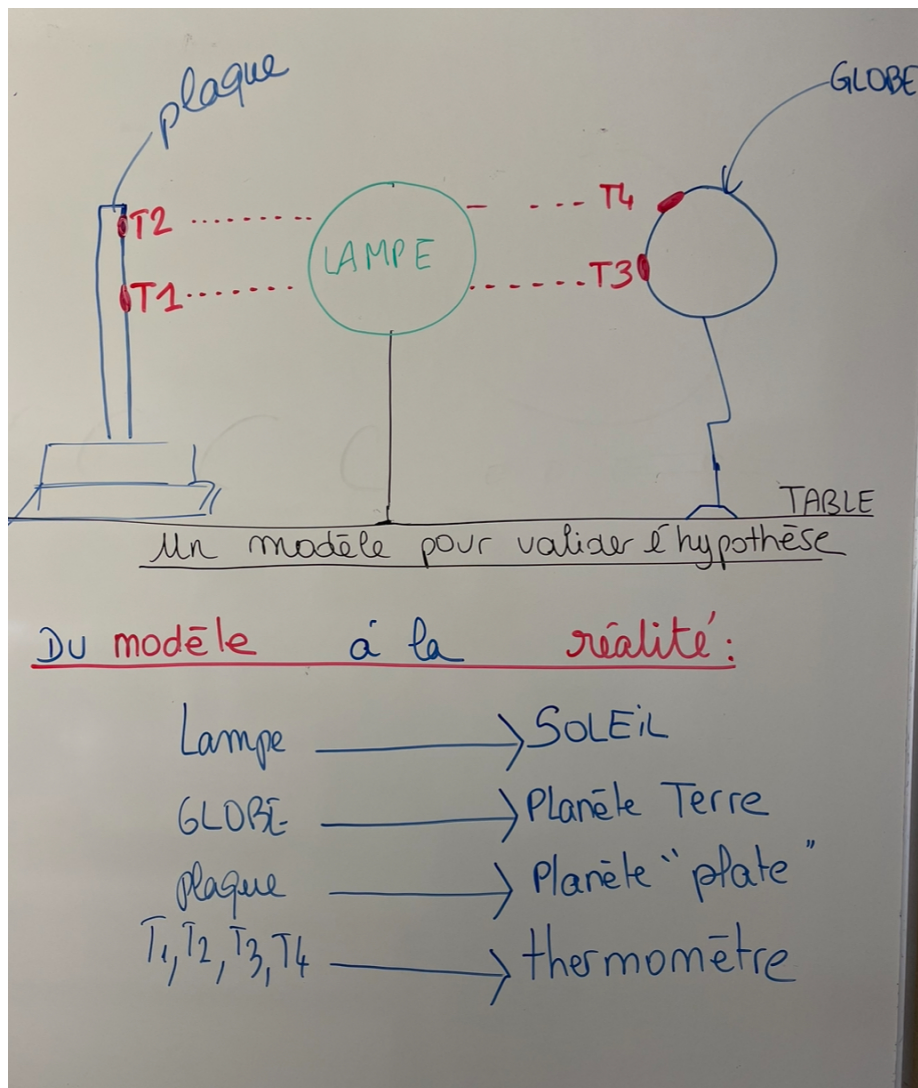 plaque
GLOBE
T2
T4
LAMPE
T1
T3
TABLE
Un modèle pour valider l'hypothèse
Du modèle á la réalité:
Lampe SOLEIL
GLOBE Planète Terre
plaque Planète "plate"
T1, T2, T3, T4 thermomètre